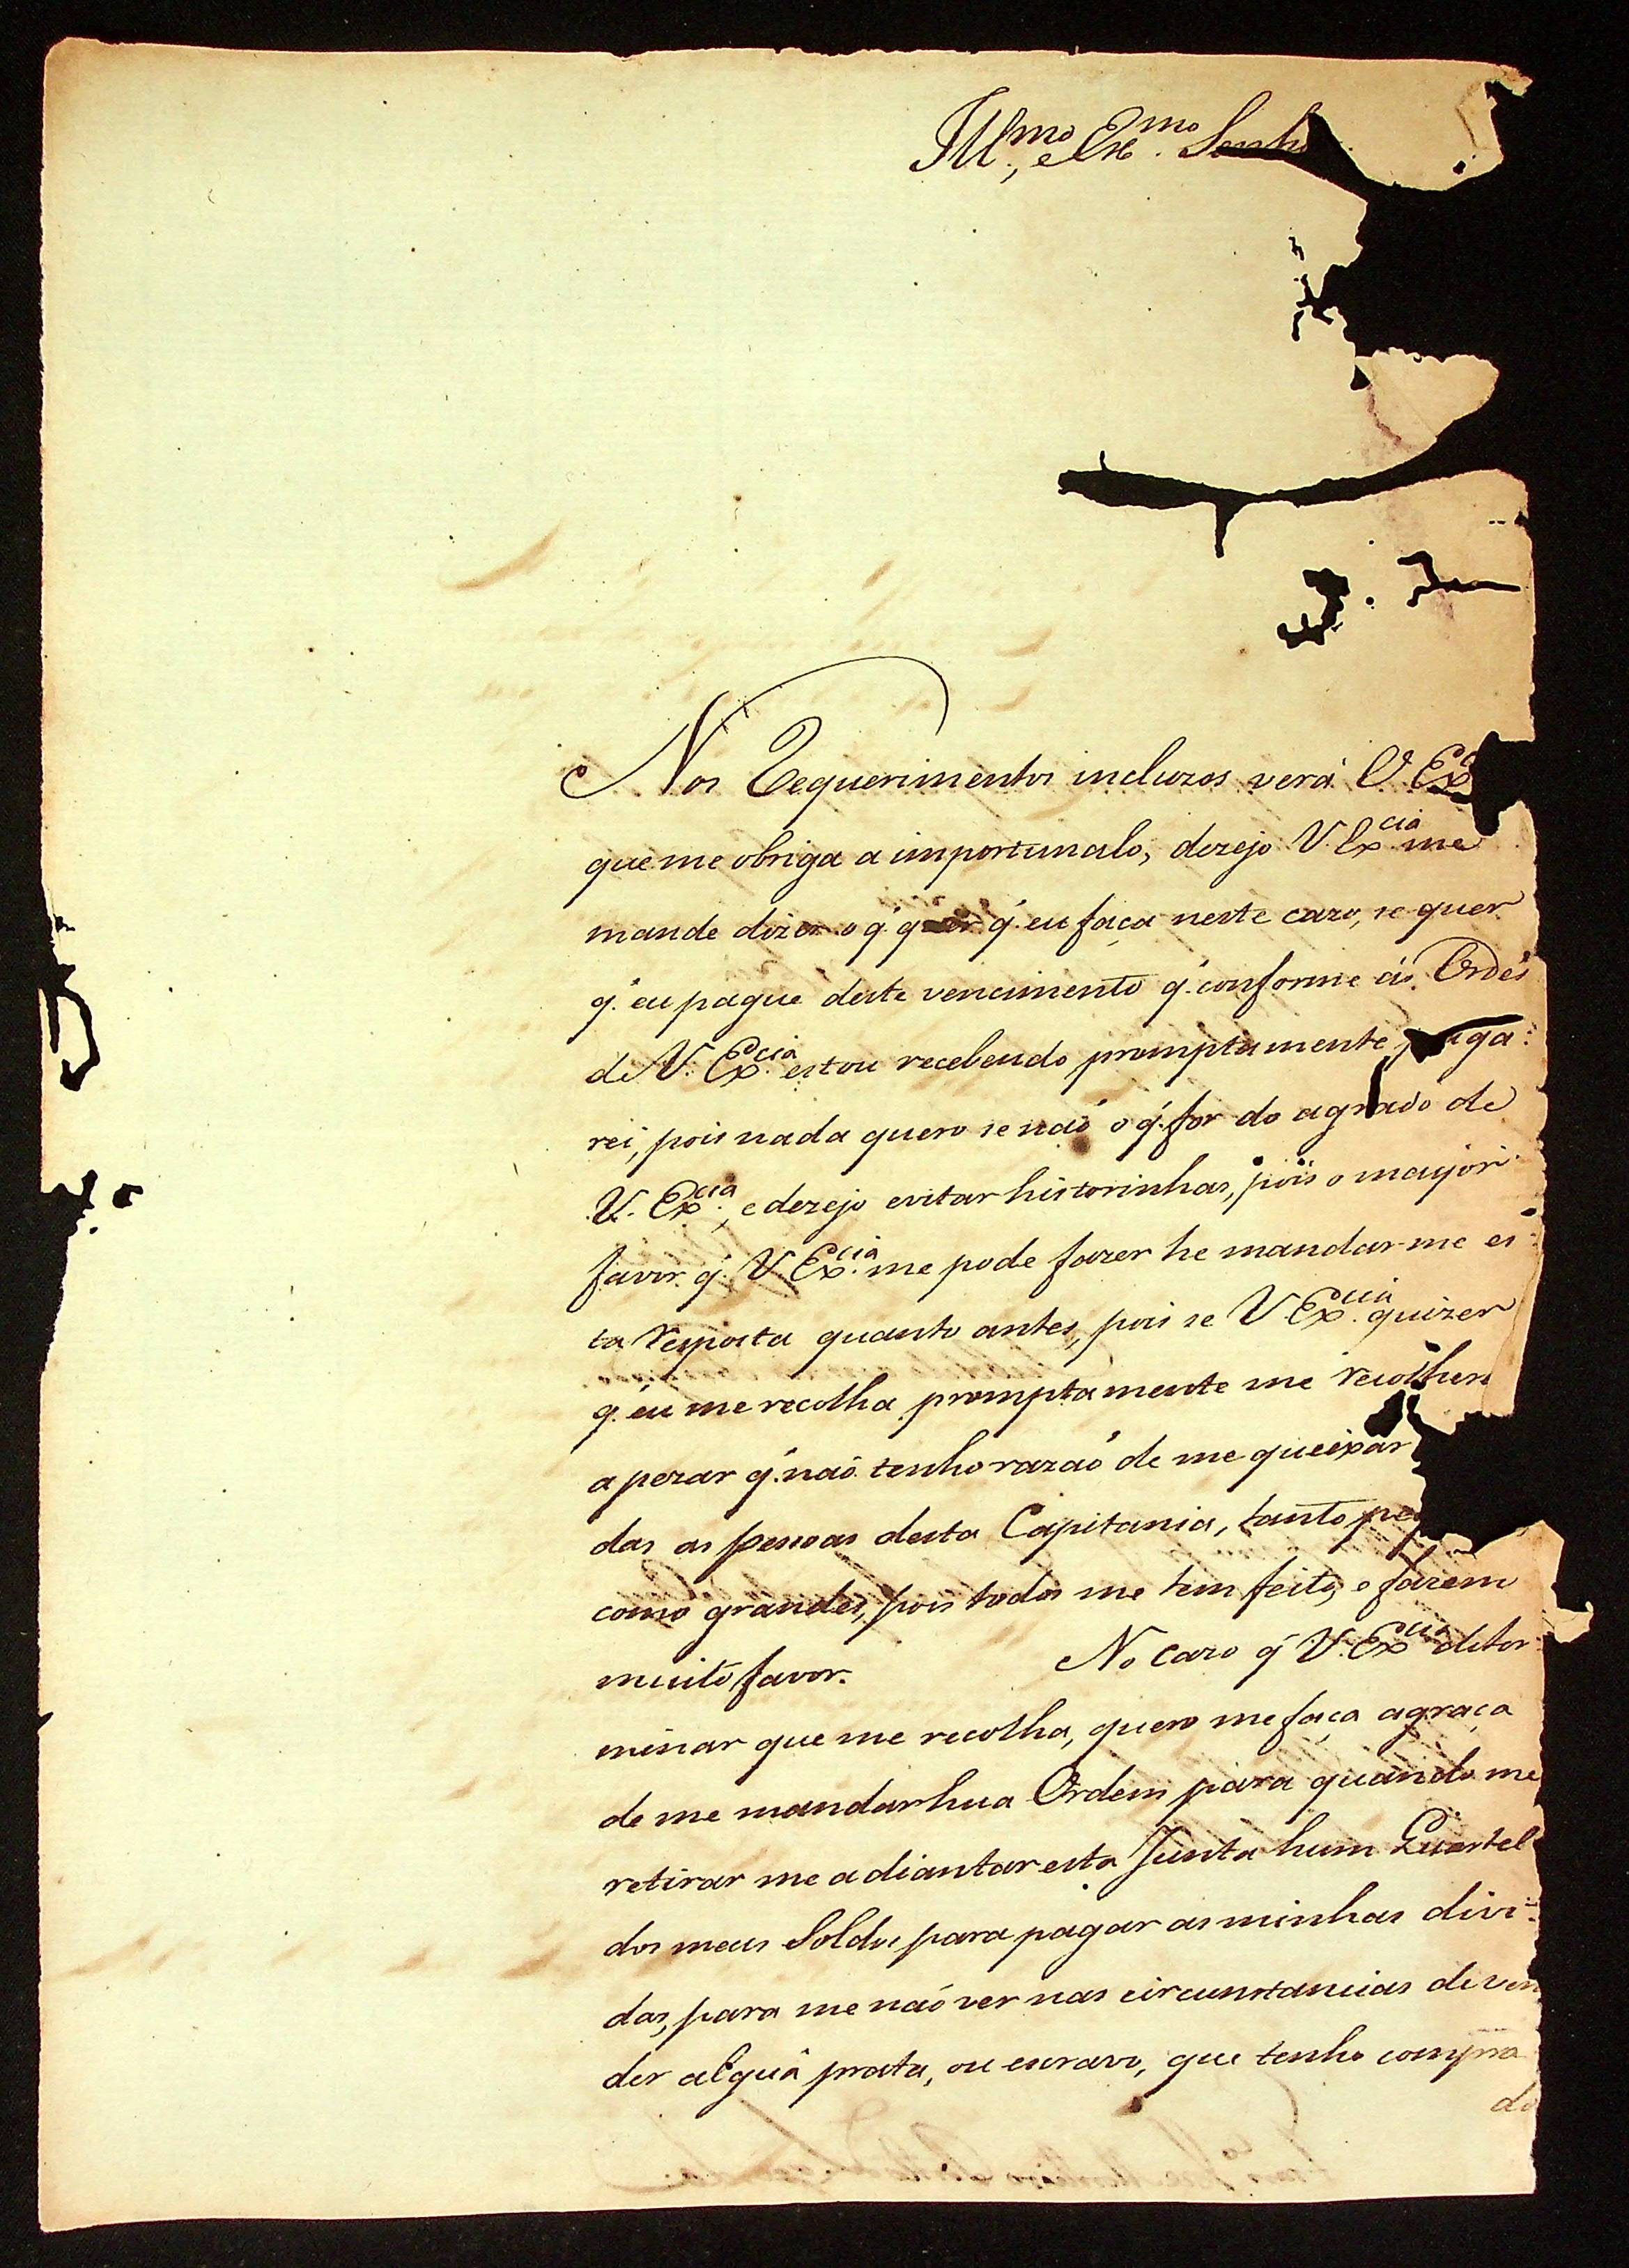 Ill.mo, e Ex.mo Senho
Nos Requerimentos incluzos verá V. Ex
que me obriga a importunalo, dezejo V. Ex.cia me
mande dizer o q̃ quer q̃ eu faça neste cazo, se quer
q̃ eu pague deste vencimento q̃ conforme ás Ordẽs
de V. Ex.cia estou recebendo promptamente paga:
rei, pois nada quero se naõ o q̃ for do agrado de
V. Ex.cia, e dezejo evitar historinhas, pois o mayor
favor q̃ V. Ex.cia me pode fazer he mandar-me es:
ta resposta quanto antes, pois se V. Ex.cia quizer
q̃ eu me recolha promptamente me recolher
a pezar q̃ naõ tenho razaõ de me queixar
das as pessoas desta Capitania, tanto pe
como grandes, pois todos me tem feito, e fazem
muito favor. No cazo q̃ V. Ex.cia deter:
minar que me recolha, quero me faça a graça
de me mandar hua Ordem para quando me
retirar me adiantar esta Junta hum Quartel
dos meus Soldos para pagar as minhas divi:
das, para me naõ ver nas circunstancias de ven
der alguã prata, ou escravo, que tenho compra
do